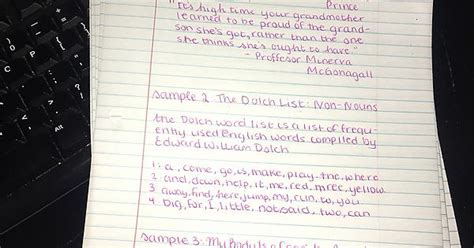 Prince
"It's high time your grandmother
learned to be proud of the grand-
son she's got, rather than the one
she thinks she's ought to have"
- Proffesor Minerva
McGonagall
Sample 2: The Dolch List: Non-Nouns
the Dolch word list is a list of frequ-
ently used English words compiled by
Edward William Dolch
1. a, come, go, is, make, play, the, where
2 and, down, help, it, me, red, three, yellow
3 away, find, here, jump, my, run, to, you
4 big, for, I, little, not, said, two, can
Sample 3: My